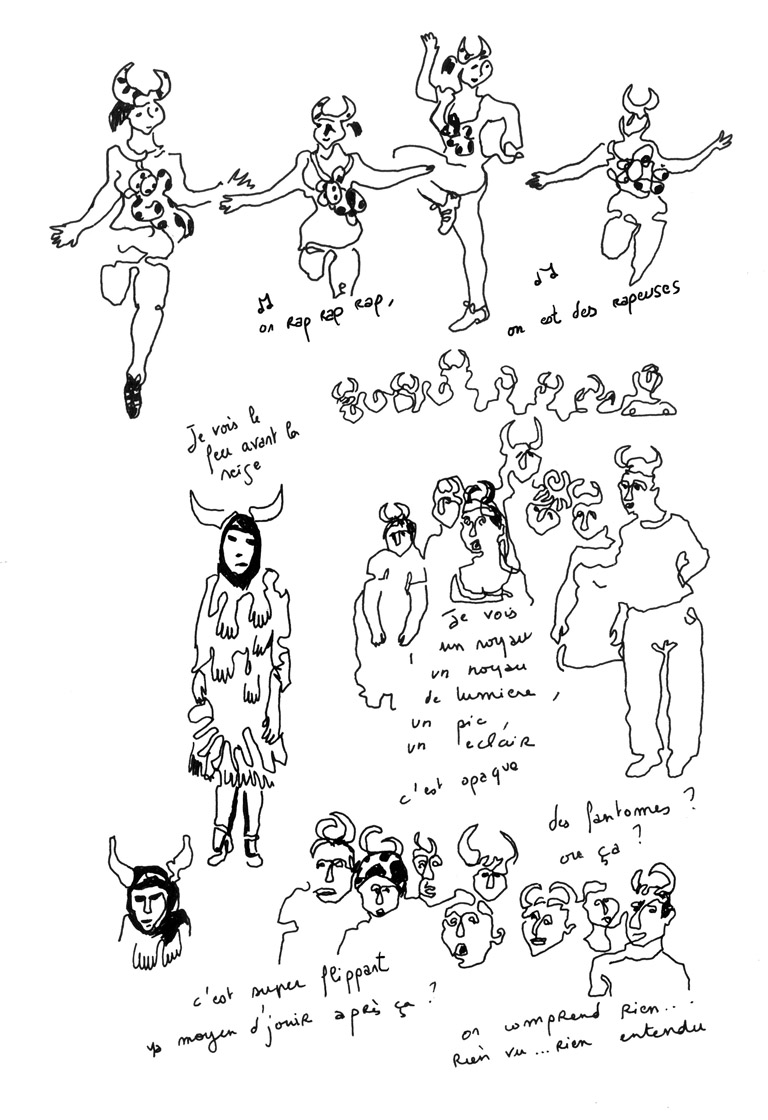 on rap rap rap,
on est des rapeuses
Je vois le
feu avant la
neige
Je vois
un noyau
un noyau
de lumiere,
un pic
un eclair
c'est opaque
des fantomes ?
ou ça ?
c'est super flippant
ya moyen d'jouir après ça ?
on comprend rien...
rien vu... rien entendu